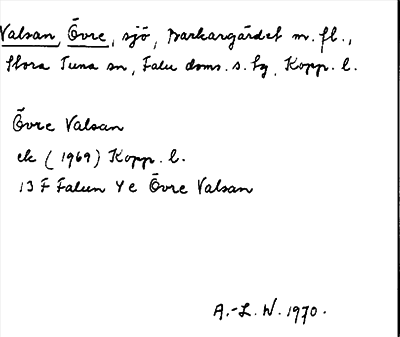 Valsan, Övre, sjö, Barkargärdet m. fl.,
Stora Tuna sn, Falu doms. s. tg, Kopp. l.
Övre Valsan
ek (1969) Kopp. l.
13 F Falun 4 e Övre Valsan
A.-L. W. 1970.